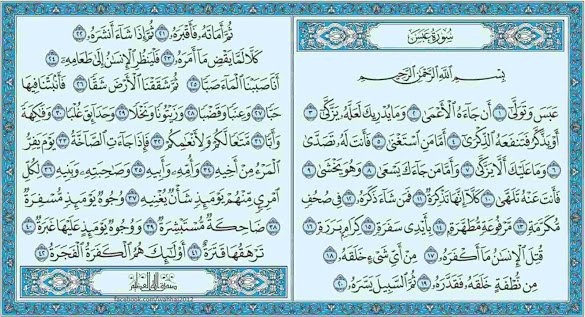 سُورَةُ عَبَسَ
بِسْمِ اللَّهِ الرَّحْمَنِ الرَّحِيمِ
عَبَسَ وَتَوَلَّىٰ ١ أَن جَاءَهُ الْأَعْمَىٰ ٢ وَمَا يُدْرِيكَ لَعَلَّهُ يَزَّكَّىٰ ٣
أَوْ يَذَّكَّرُ فَتَنفَعَهُ الذِّكْرَىٰ ٤ أَمَّا مَنِ اسْتَغْنَىٰ ٥ فَأَنتَ لَهُ تَصَدَّىٰ
٦ وَمَا عَلَيْكَ أَلَّا يَزَّكَّىٰ ٧ وَأَمَّا مَن جَاءَكَ يَسْعَىٰ ٨ وَهُوَ يَخْشَىٰ ٩
فَأَنتَ عَنْهُ تَلَهَّىٰ ١٠ كَلَّا إِنَّهَا تَذْكِرَةٌ ١١ فَمَن شَاءَ ذَكَرَهُ ١٢ فِي صُحُفٍ
مُّكَرَّمَةٍ ١٣ مَّرْفُوعَةٍ مُّطَهَّرَةٍ ١٤ بِأَيْدِي سَفَرَةٍ ١٥ كِرَامٍ بَرَرَةٍ ١٦
قُتِلَ الْإِنسَٰنُ مَا أَكْفَرَهُ ١٧ مِنْ أَيِّ شَيْءٍ خَلَقَهُ ١٨
مِن نُّطْفَةٍ خَلَقَهُ فَقَدَّرَهُ ١٩ ثُمَّ السَّبِيلَ يَسَّرَهُ ٢٠
ثُمَّ أَمَاتَهُ فَأَقْبَرَهُ ٢١ ثُمَّ إِذَا شَاءَ أَنشَرَهُ ٢٢
كَلَّا لَمَّا يَقْضِ مَا أَمَرَهُ ٢٣ فَلْيَنظُرِ الْإِنسَٰنُ إِلَىٰ طَعَامِهِ ٢٤
أَنَّا صَبَبْنَا الْمَاءَ صَبًّا ٢٥ ثُمَّ شَقَقْنَا الْأَرْضَ شَقًّا ٢٦ فَأَنبَتْنَا فِيهَا
حَبًّا ٢٧ وَعِنَبًا وَقَضْبًا ٢٨ وَزَيْتُونًا وَنَخْلًا ٢٩ وَحَدَائِقَ غُلْبًا ٣٠ وَفَٰكِهَةً
وَأَبًّا ٣١ مَّتَٰعًا لَّكُمْ وَلِأَنْعَٰمِكُمْ ٣٢ فَإِذَا جَاءَتِ الصَّاخَّةُ ٣٣ يَوْمَ يَفِرُّ
الْمَرْءُ مِنْ أَخِيهِ ٣٤ وَأُمِّهِ وَأَبِيهِ ٣٥ وَصَٰحِبَتِهِ وَبَنِيهِ ٣٦ لِكُلِّ
امْرِئٍ مِّنْهُمْ يَوْمَئِذٍ شَأْنٌ يُغْنِيهِ ٣٧ وُجُوهٌ يَوْمَئِذٍ مُّسْفِرَةٌ
٣٨ ضَاحِكَةٌ مُّسْتَبْشِرَةٌ ٣٩ وَوُجُوهٌ يَوْمَئِذٍ عَلَيْهَا غَبَرَةٌ ٤٠
تَرْهَقُهَا قَتَرَةٌ ٤١ أُولَٰئِكَ هُمُ الْكَفَرَةُ الْفَجَرَةُ ٤٢
صدق الله العظيم